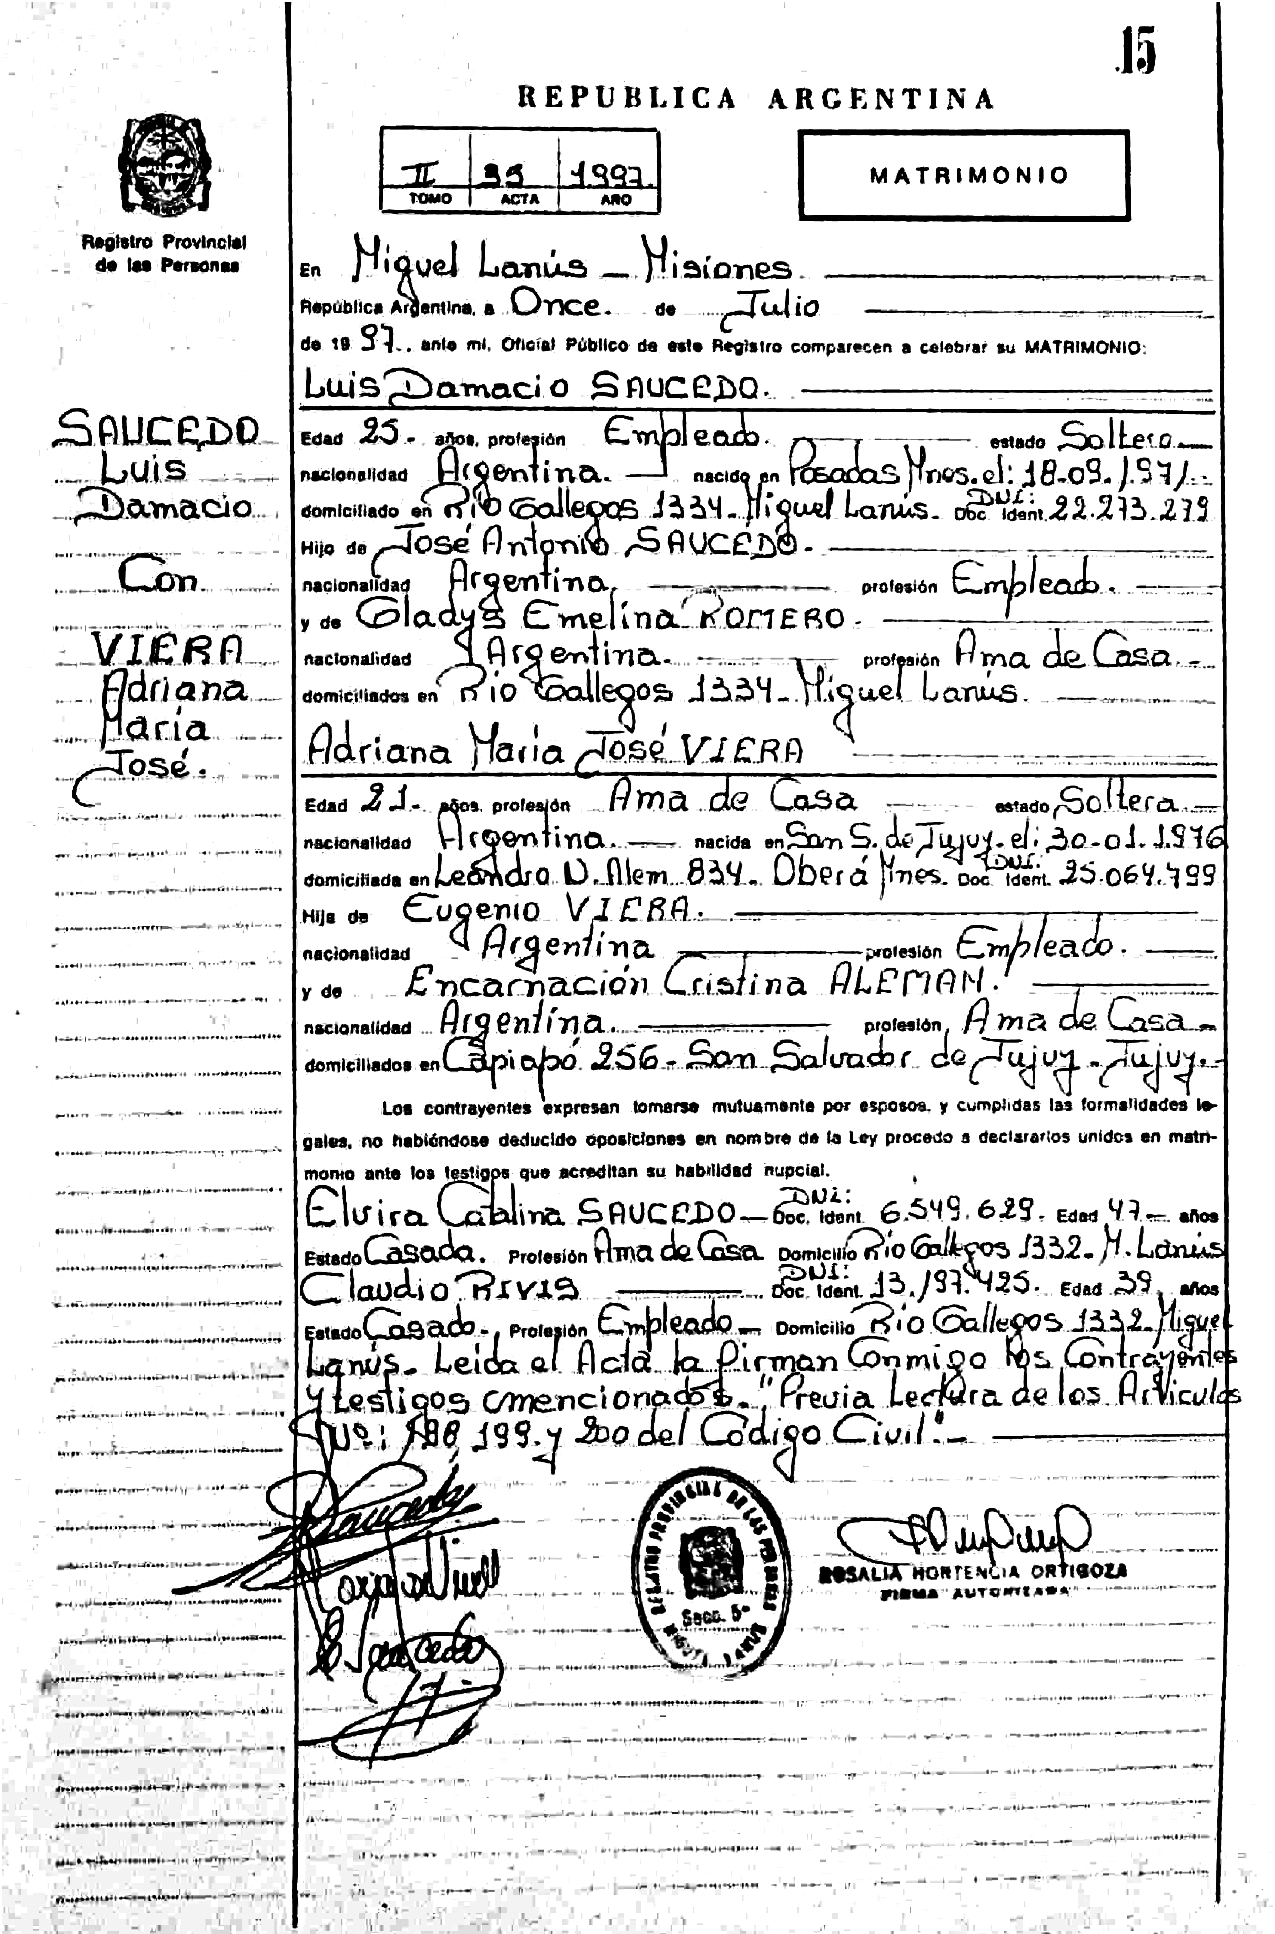 15
REPUBLICA ARGENTINA
II 39 1.997.
TOMO ACTA AÑO
MATRIMONIO
Registro Provincial
de las Personas
SAUCEDO
Luis
Damacio
Con
VIERA
Adriana
María
José.
En Miguel Lanús - Misiones.
República Argentina, a Once. de Julio
de 1997., ante mi, Oficial Público de este Registro comparecen a celebrar su MATRIMONIO:
Luis Damacio SAUCEDO.
Edad 25.- años, profesión Empleado. estado Soltero
nacionalidad Argentina. nacido en Posadas Mnes. el: 18-09-1971.-
domiciliado en Río Gallegos 1334- Miguel Lanús- DNI: Doc. Ident. 22.273.279
Hijo de José Antonio SAUCEDO.
nacionalidad Argentina. profesión Empleado.
y de Gladys Emelina ROMERO.
nacionalidad Argentina. profesión Ama de Casa.-
domiciliados en Río Gallegos 1334- Miguel Lanús.
Adriana María José VIERA
Edad 21.- años, profesión Ama de Casa estado Soltera
nacionalidad Argentina. nacida en San S. de Jujuy. el: 30-01-1.976
domiciliada en Leandro N. Alem 834- Oberá Mnes. DNI: Doc. Ident. 25.064.799
Hija de Eugenio VIERA.
nacionalidad Argentina profesión Empleado.
y de Encarnación Cristina ALEMAN.
nacionalidad Argentina. profesión Ama de Casa-
domiciliados en Capiapó 256- San Salvador de Jujuy- Jujuy.-
Los contrayentes expresan tomarse mutuamente por esposos, y cumplidas las formalidades le-
gales, no habiéndose deducido oposiciones en nombre de la Ley procedo a declararlos unidos en matri-
monio ante los testigos que acreditan su habilidad nupcial.
Elvira Catalina SAUCEDO- DNI: Doc. Ident. 6.549.629. Edad 47- años
Estado Casada. Profesión Ama de Casa Domicilio Río Gallegos 1332- M. Lanús
Claudio RIVIS DNI: Doc. Ident. 13.197.425. Edad 39. años
Estado Casado-, Profesión Empleado- Domicilio Río Gallegos 1332- Miguel
Lanús- Leída el Acta la firman Conmigo los Contrayentes
y testigos mencionados- "Previa Lectura de los Articulos
Nº: 198, 199. y 200 del Código Civil".-
REGISTRO PROVINCIAL DE LAS PERSONAS
Secc. 5ª
MIGUEL LANUS
ROSALIA HORTENCIA ORTIGOZA
FIRMA AUTORIZADA
E Saucedo